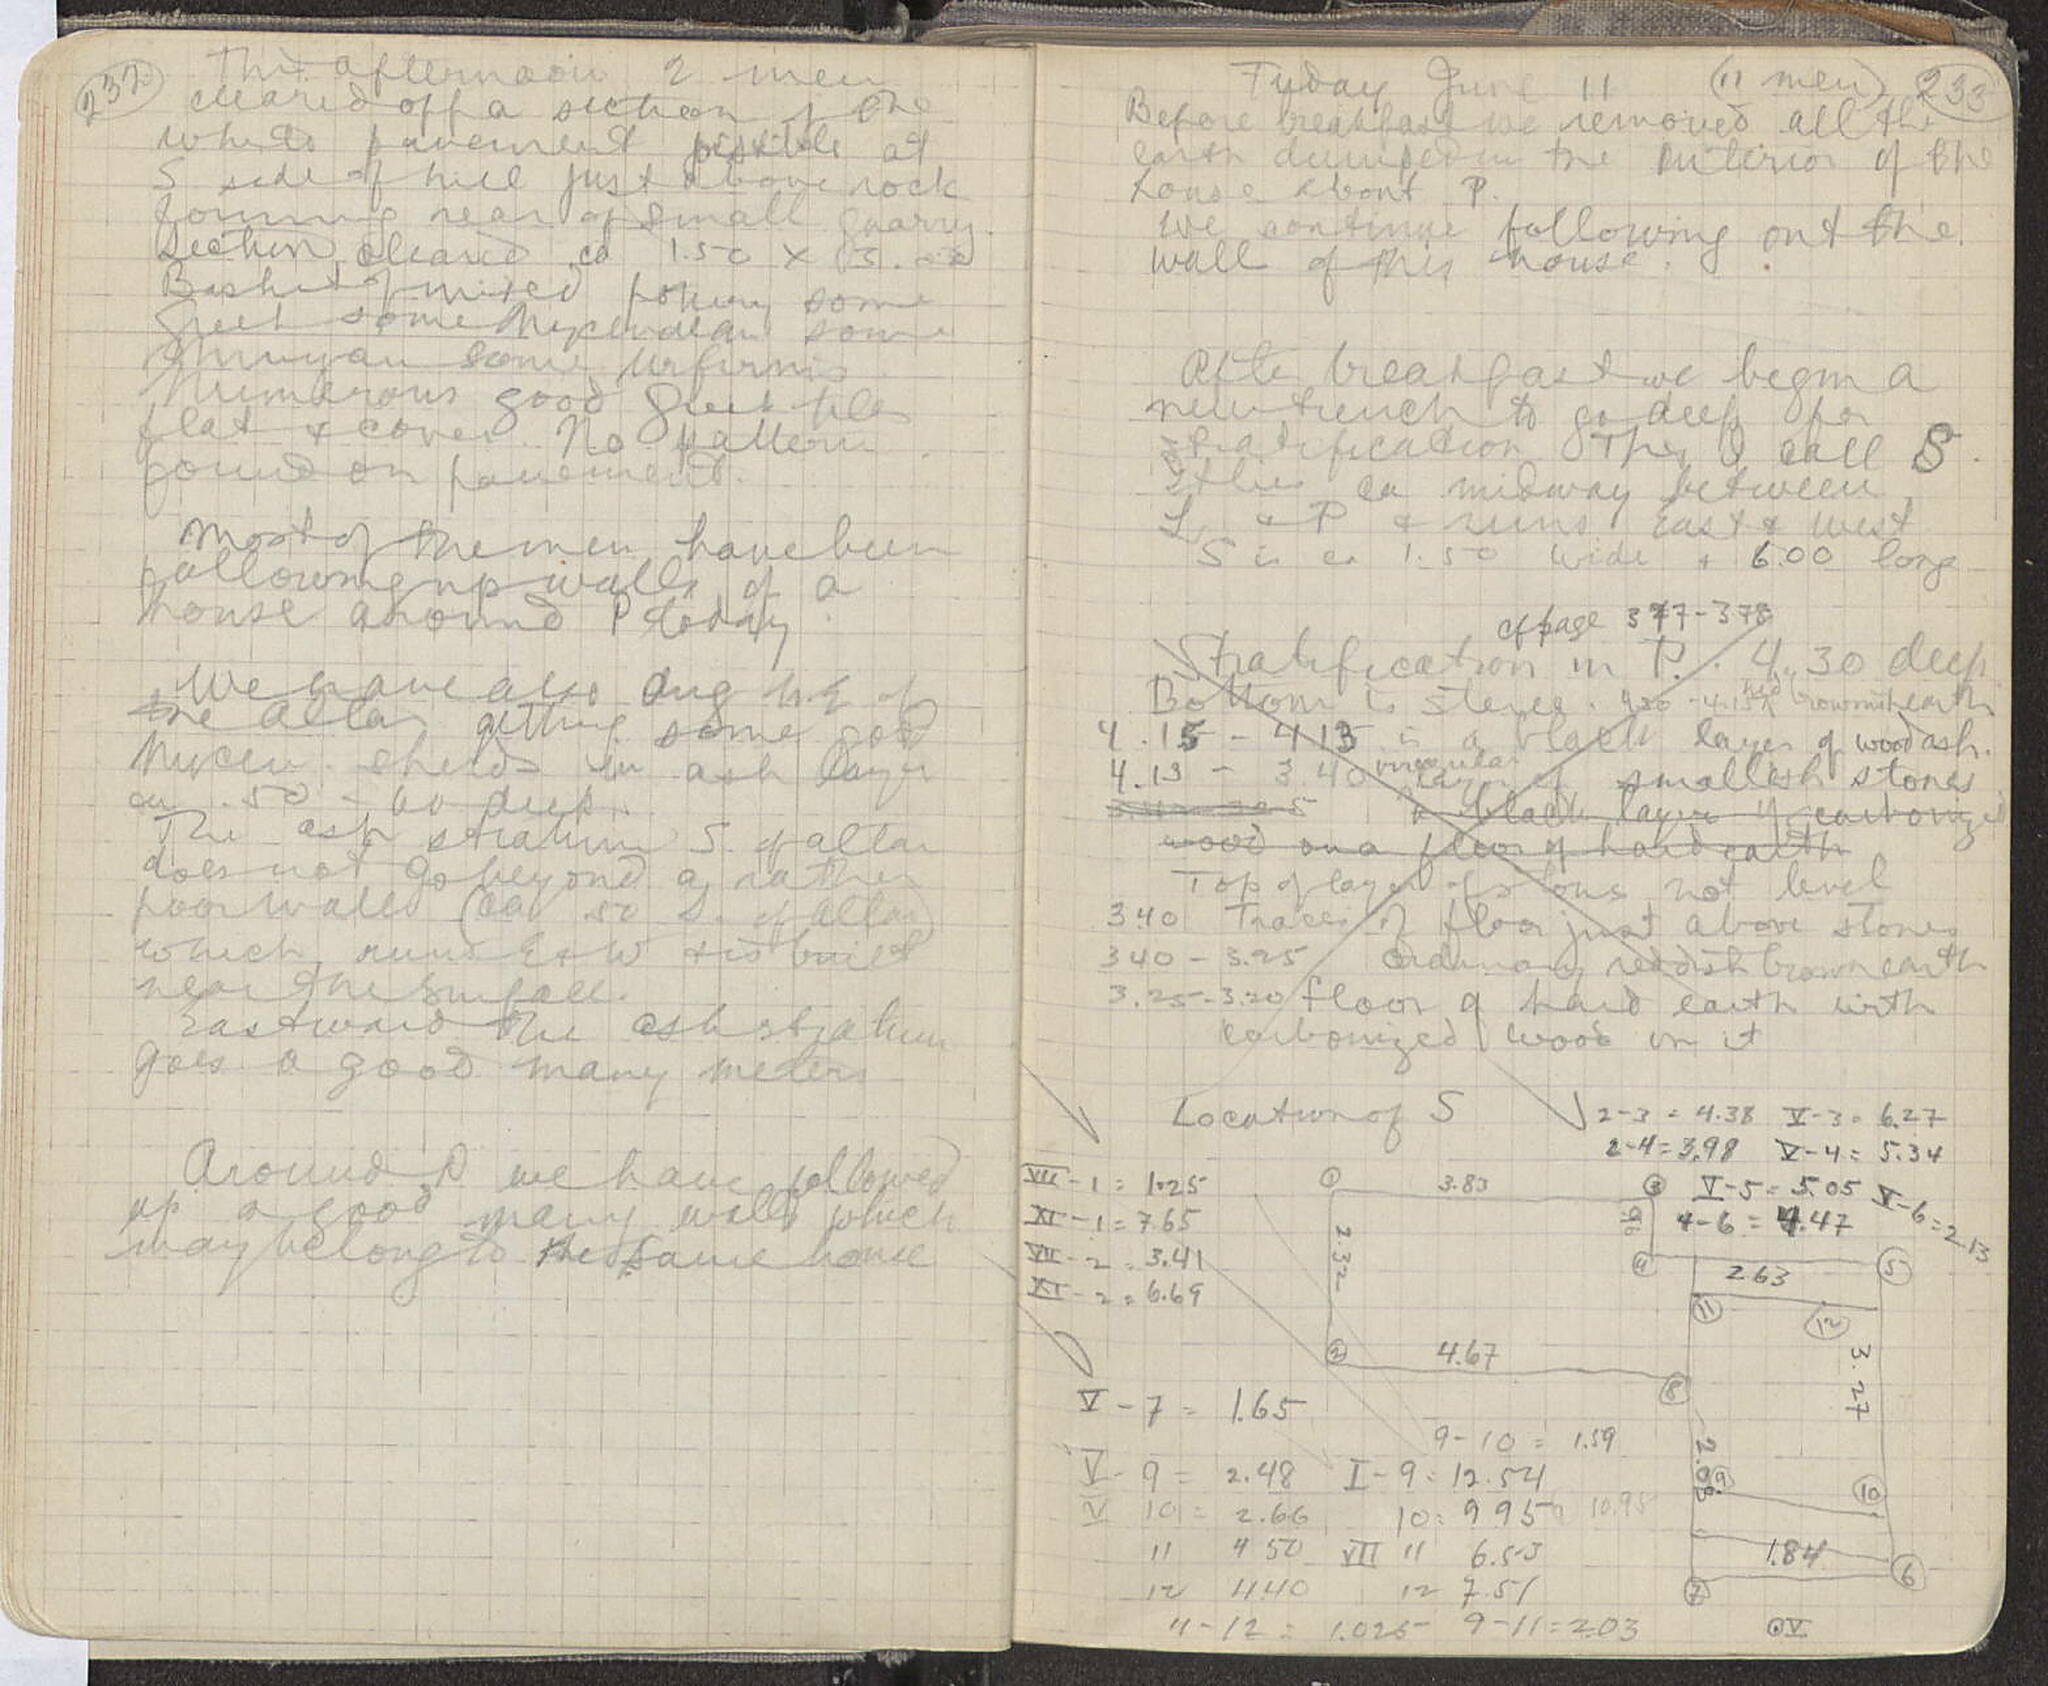 232
This afternoon 2 men
cleared off a section of the
white pavement visible at
S side of hill just above rock
forming rear of small quarry.
Section cleared ca 1.50 X 3.00
Basket of mixed pottery some
Greek some Mycenaean some
Minyan some Urfirnis
Numerous good Greek tiles
flat & cover. No pattern
found on pavement.
Most of the men have been
following up walls of a
house around P today.
We have also dug N.E of
the altar getting some good
Mycen. sherds in ash layer
ca .50 - 60 deep.
The ash stratum S. of altar
does not go beyond a rather
poor wall (ca 50 S. of altar)
which runs E & W & is built
near the surface.
Eastward the ash stratum
goes a good many meters
Around P we have followed
up a good many walls which
may belong to the same house
Fryday June 11 (11 men) 233
Before breakfast we removed all the
earth dumped in the interior of the
house about P.
We continue following out the
wall of this house.
After breakfast we begin a
new trench to go deep for
stratification This I call S.
It lies ca midway between
L & P & runs East & West
S is ca 1.50 wide & 6.00 long
cf page 377-378
Stratification in P. 4.30 deep
Bottom is stereo. 430 - 4.15 red brownish earth
4.15 - 413 is a black layer of wood ash.
4.13 - 3.40 irregular layer of smallish stones
a black layer of carbonized
wood on a floor of hard earth
Top of layer of stones not level
3.40 Traces of floor just above stones
340 - 3.25 ordinary reddish brown earth
3.25-3.20 floor of hard earth with
carbonized wood on it
Location of S
2-3 = 4.38 V-3 = 6.27
2-4 = 3.98 V-4 = 5.34
V-5 = 5.05 V-6 = 2.13
4-6 = 4.47
VII - 1 = 1.25
XI - 1 = 7.65
VII - 2 = 3.41
XI - 2 = 6.69
1 3.83 3
2.32
96
4 5
2.63
11 12
3.27
2 4.67
8
V - 7 = 1.65
9-10 = 1.59
V - 9 = 2.48 I - 9 = 12.54
V 10 = 2.66 10 = 995 10.95
11 4 50 VII 11 6.53
12 4.40 12 7.51
11-12 = 1.025 9-11 = 2.03
2.08
9 10
1.84
7 6
V